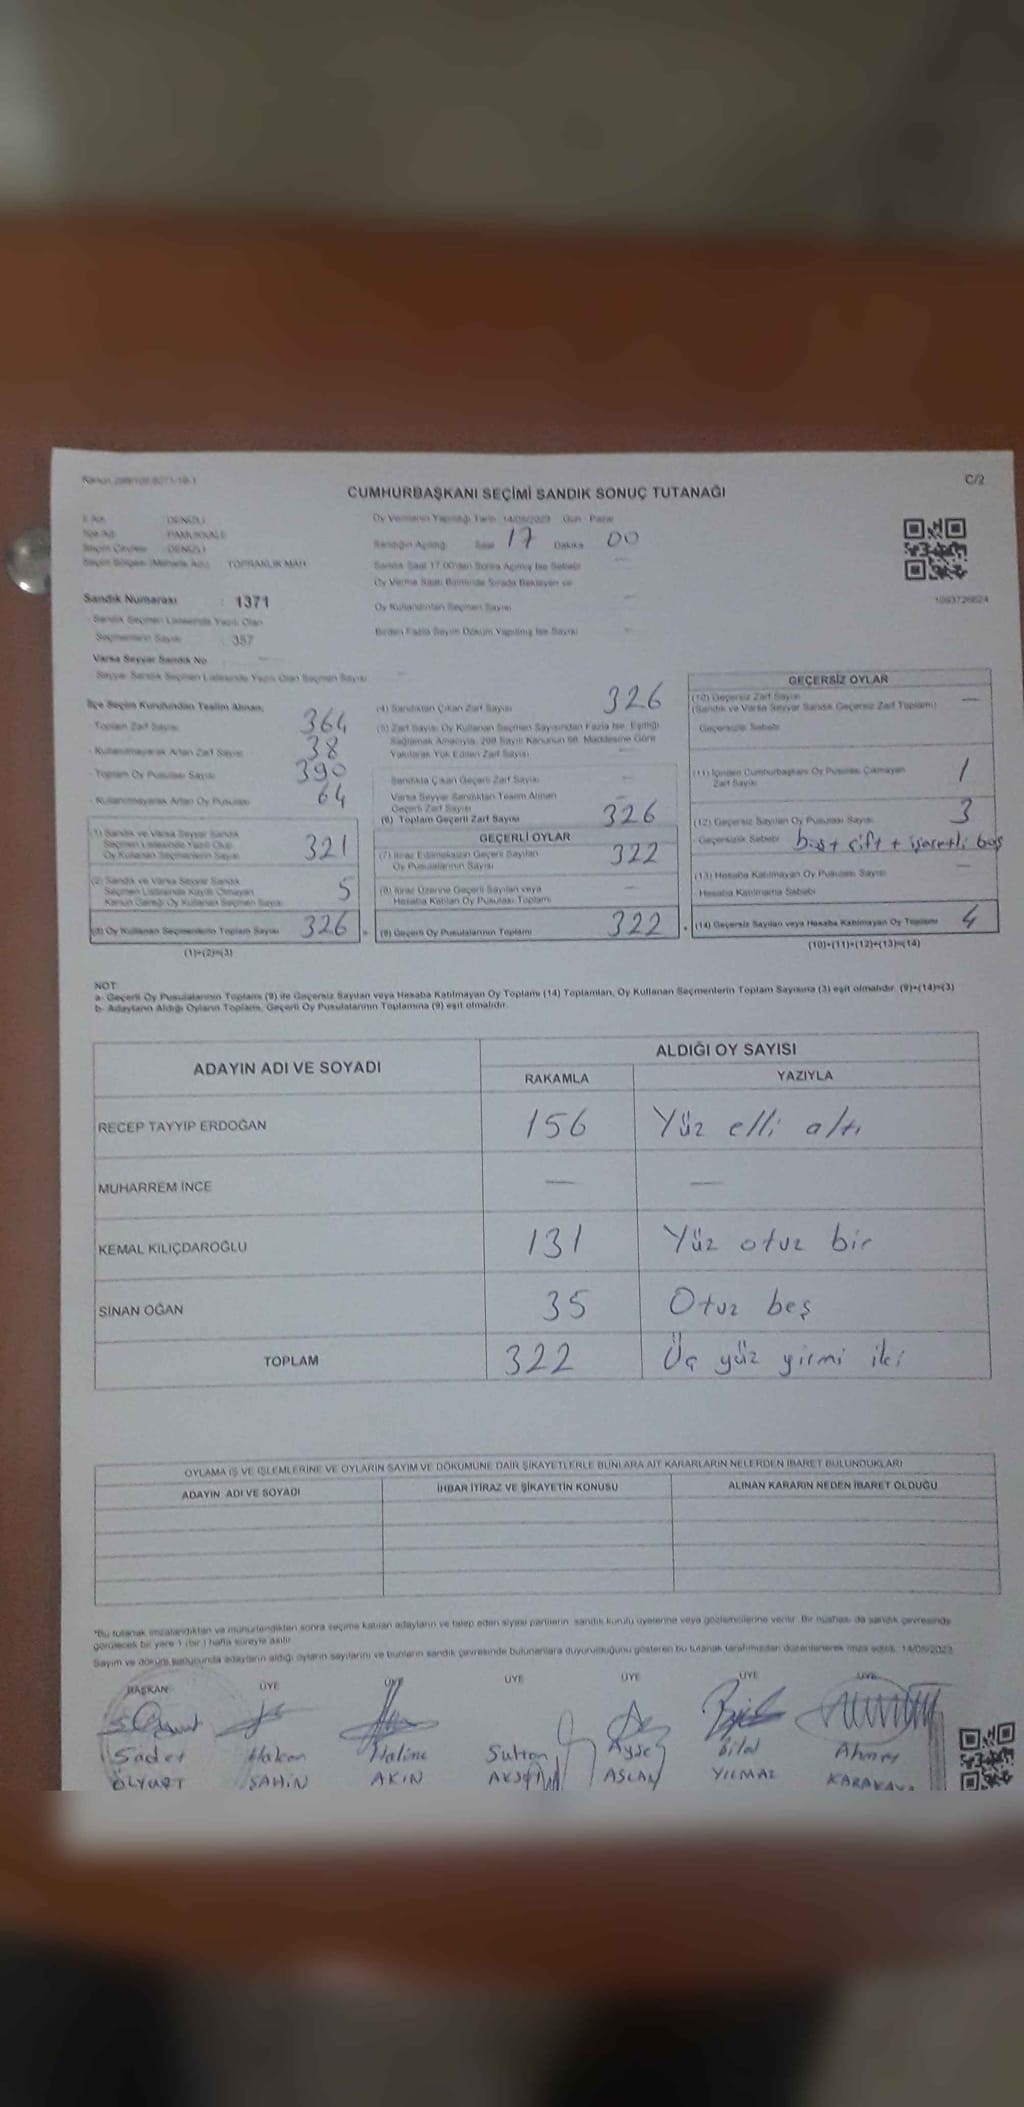 C/2
CUMHURBAŞKANI SEÇİMİ SANDIK SONUÇ TUTANAĞI
İl Adı : DENİZLİ
İlçe Adı : PAMUKKALE
Seçim Çevresi : DENİZLİ
Seçim Bölgesi (Mahalle Adı) : TOPRAKLIK MAH.
Oy Vermenin Yapıldığı Tarih : 14/05/2023 Gün : Pazar
Sandığın Açılışı Saat 17 Dakika 00
Sandık Saat 17.00'den Sonra Açılmış İse Sebebi
Oy Verme Saati Bitiminde Sırada Bekleyen ve
Oy Kullandırılan Seçmen Sayısı —
Birden Fazla Sayım Döküm Yapılmış İse Sayısı —
Sandık Numarası : 1371
Sandık Seçmen Listesinde Yazılı Olan
Seçmenlerin Sayısı : 357
Varsa Seyyar Sandık No —
Seyyar Sandık Seçmen Listesinde Yazılı Olan Seçmen Sayısı —
İlçe Seçim Kurulundan Teslim Alınan;
- Toplam Zarf Sayısı 364
- Kullanılmayarak Artan Zarf Sayısı 38
- Toplam Oy Pusulası Sayısı 390
- Kullanılmayarak Artan Oy Pusulası 64
(1) Sandık ve Varsa Seyyar Sandık
Seçmen Listesinde Yazılı Olup
Oy Kullanan Seçmenlerin Sayısı 321
(2) Sandık ve Varsa Seyyar Sandık
Seçmen Listesinde Kayıtlı Olmayan
Kanun Gereği Oy Kullanan Seçmen Sayısı 5
(3) Oy Kullanan Seçmenlerin Toplam Sayısı 326
(1)+(2)=(3)
(4) Sandıktan Çıkan Zarf Sayısı 326
(5) Zarf Sayısı Oy Kullanan Seçmen Sayısından Fazla İse, Eşitliği
Sağlamak Amacıyla, 298 Sayılı Kanunun 98. Maddesine Göre
Yakılarak Yok Edilen Zarf Sayısı —
Sandıkta Çıkan Geçerli Zarf Sayısı —
Varsa Seyyar Sandıktan Teslim Alınan
Geçerli Zarf Sayısı —
(6) Toplam Geçerli Zarf Sayısı 326
GEÇERLİ OYLAR
(7) İtiraz Edilmeksizin Geçerli Sayılan
Oy Pusulalarının Sayısı 322
(8) İtiraz Üzerine Geçerli Sayılan veya
Hesaba Katılan Oy Pusulası Toplamı —
(9) Geçerli Oy Pusulalarının Toplamı 322
GEÇERSİZ OYLAR
(10) Geçersiz Zarf Sayısı —
(Sandık ve Varsa Seyyar Sandık Geçersiz Zarf Toplamı)
Geçersizlik Sebebi
(11) İçinden Cumhurbaşkanı Oy Pusulası Çıkmayan
Zarf Sayısı 1
(12) Geçersiz Sayılan Oy Pusulası Sayısı 3
Geçersizlik Sebebi boş + çift + işaretli boş
(13) Hesaba Katılmayan Oy Pusulası Sayısı —
Hesaba Katılmama Sebebi
(14) Geçersiz Sayılan veya Hesaba Katılmayan Oy Toplamı 4
(10)+(11)+(12)+(13)=(14)
NOT:
a- Geçerli Oy Pusulalarının Toplamı (9) ile Geçersiz Sayılan veya Hesaba Katılmayan Oy Toplamı (14) Toplamları, Oy Kullanan Seçmenlerin Toplam Sayısına (3) eşit olmalıdır. (9)+(14)=(3)
b- Adayların Aldığı Oyların Toplamı, Geçerli Oy Pusulalarının Toplamına (9) eşit olmalıdır.
ADAYIN ADI VE SOYADI ALDIĞI OY SAYISI
RAKAMLA YAZIYLA
RECEP TAYYİP ERDOĞAN 156 Yüz elli altı
MUHARREM İNCE — —
KEMAL KILIÇDAROĞLU 131 Yüz otuz bir
SİNAN OĞAN 35 Otuz beş
TOPLAM 322 Üç yüz yirmi iki
OYLAMA İŞ VE İŞLEMLERİNE VE OYLARIN SAYIM VE DÖKÜMÜNE DAİR ŞİKAYETLERLE BUNLARA AİT KARARLARIN NELERDEN İBARET BULUNDUKLARI
ADAYIN ADI VE SOYADI İHBAR İTİRAZ VE ŞİKAYETİN KONUSU ALINAN KARARIN NEDEN İBARET OLDUĞU
*Bu tutanak imzalandıktan ve mühürlendikten sonra seçime katılan adayların ve talep eden siyasi partilerin sandık kurulu üyelerine veya gözlemcilerine verilir. Bir nüshası da sandık çevresinde
görülecek bir yere 1 (bir) hafta süreyle asılır.
Sayım ve döküm sonucunda adayların aldığı oyların sayılarını ve bunların sandık çevresinde bulunanlara duyurulduğunu gösteren bu tutanak tarafımızdan düzenlenerek imza edildi. 14/05/2023
BAŞKAN ÜYE ÜYE ÜYE ÜYE ÜYE ÜYE
Sadet Hakan Halime Sultan Ayşe Bilal Ahmet
ÖLYURT ŞAHİN AKIN ASLAN YILMAZ